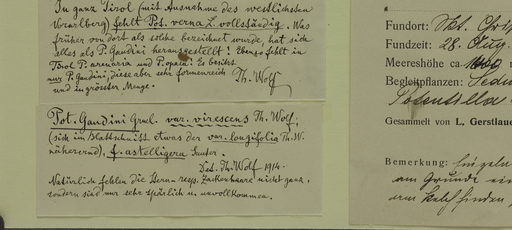 In ganz Tirol (mit Ausnahme des westlichsten
Vorarlberg) fehlt Pot. verna Z vollständig. Was
früher von dort als solche bezeichnet wurde, hat sich
alles als P. Gaudini herausgestellt! Ebenso fehlt in
Tirol P. arenaria und P. opaca! Es besitzt
nur P. Gaudini, diese aber sehr formenreich
und in grösster Menge. Th. Wolf
Pot. Gaudini Grml. var. virescens Th. Wolf,
(sich im Blattschnitt etwas der var. longifolia Th. W.
nähernd), f. astelligera
Det. Th. Wolf 1914.
Natürlich fehlen die Stern- resp. Zackenhaare nicht ganz,
sondern sind nur sehr spärlich u. unvollkommen.
Fundort: Dkt.
Fundzeit: 28. Aug.
Meereshöhe ca.
Begleitpflanzen: Sedum
Potentilla
Gesammelt von L. Gerstlaue
Bemerkung:
am Grunde ein
am Kelch finden